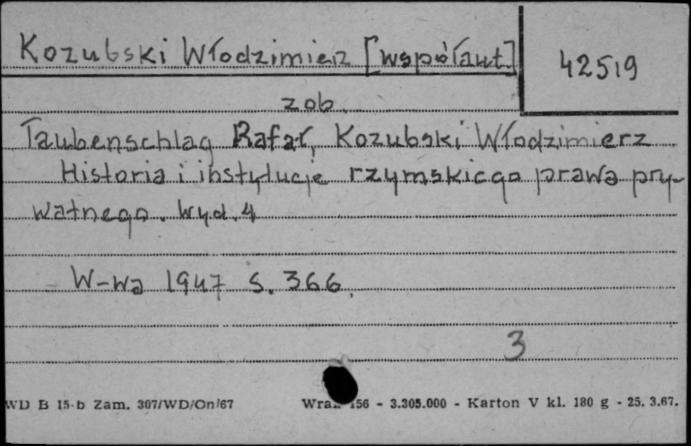 Kozubski Włodzimierz [współaut.]
42519
zob.
Taubenschlag Rafał, Kozubski Włodzimierz
Historia i instytucje rzymskiego prawa pry-
watnego. Wyd. 4
W-wa 1947 s. 366.
3
WD B 15-b Zam. 307/WD/On/67 156 - 3.305.000 - Karton V kl. 180 g - 25. 3.67.